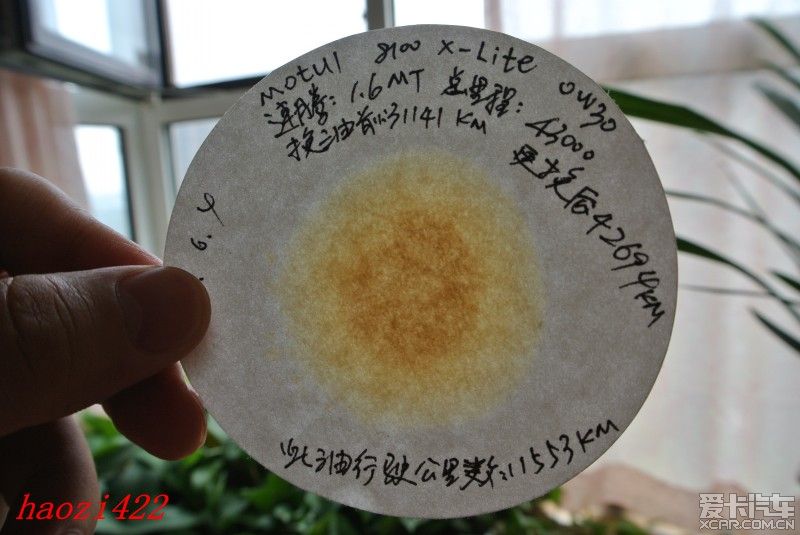 Motul 8100 X-Lite 0W30
速腾: 1.6MT 总里程: 43000
换油前:31141 KM
更换后42694KM
.6.4
此油行驶公里数:11553KM
haozi422
爱卡汽车
XCAR.COM.CN